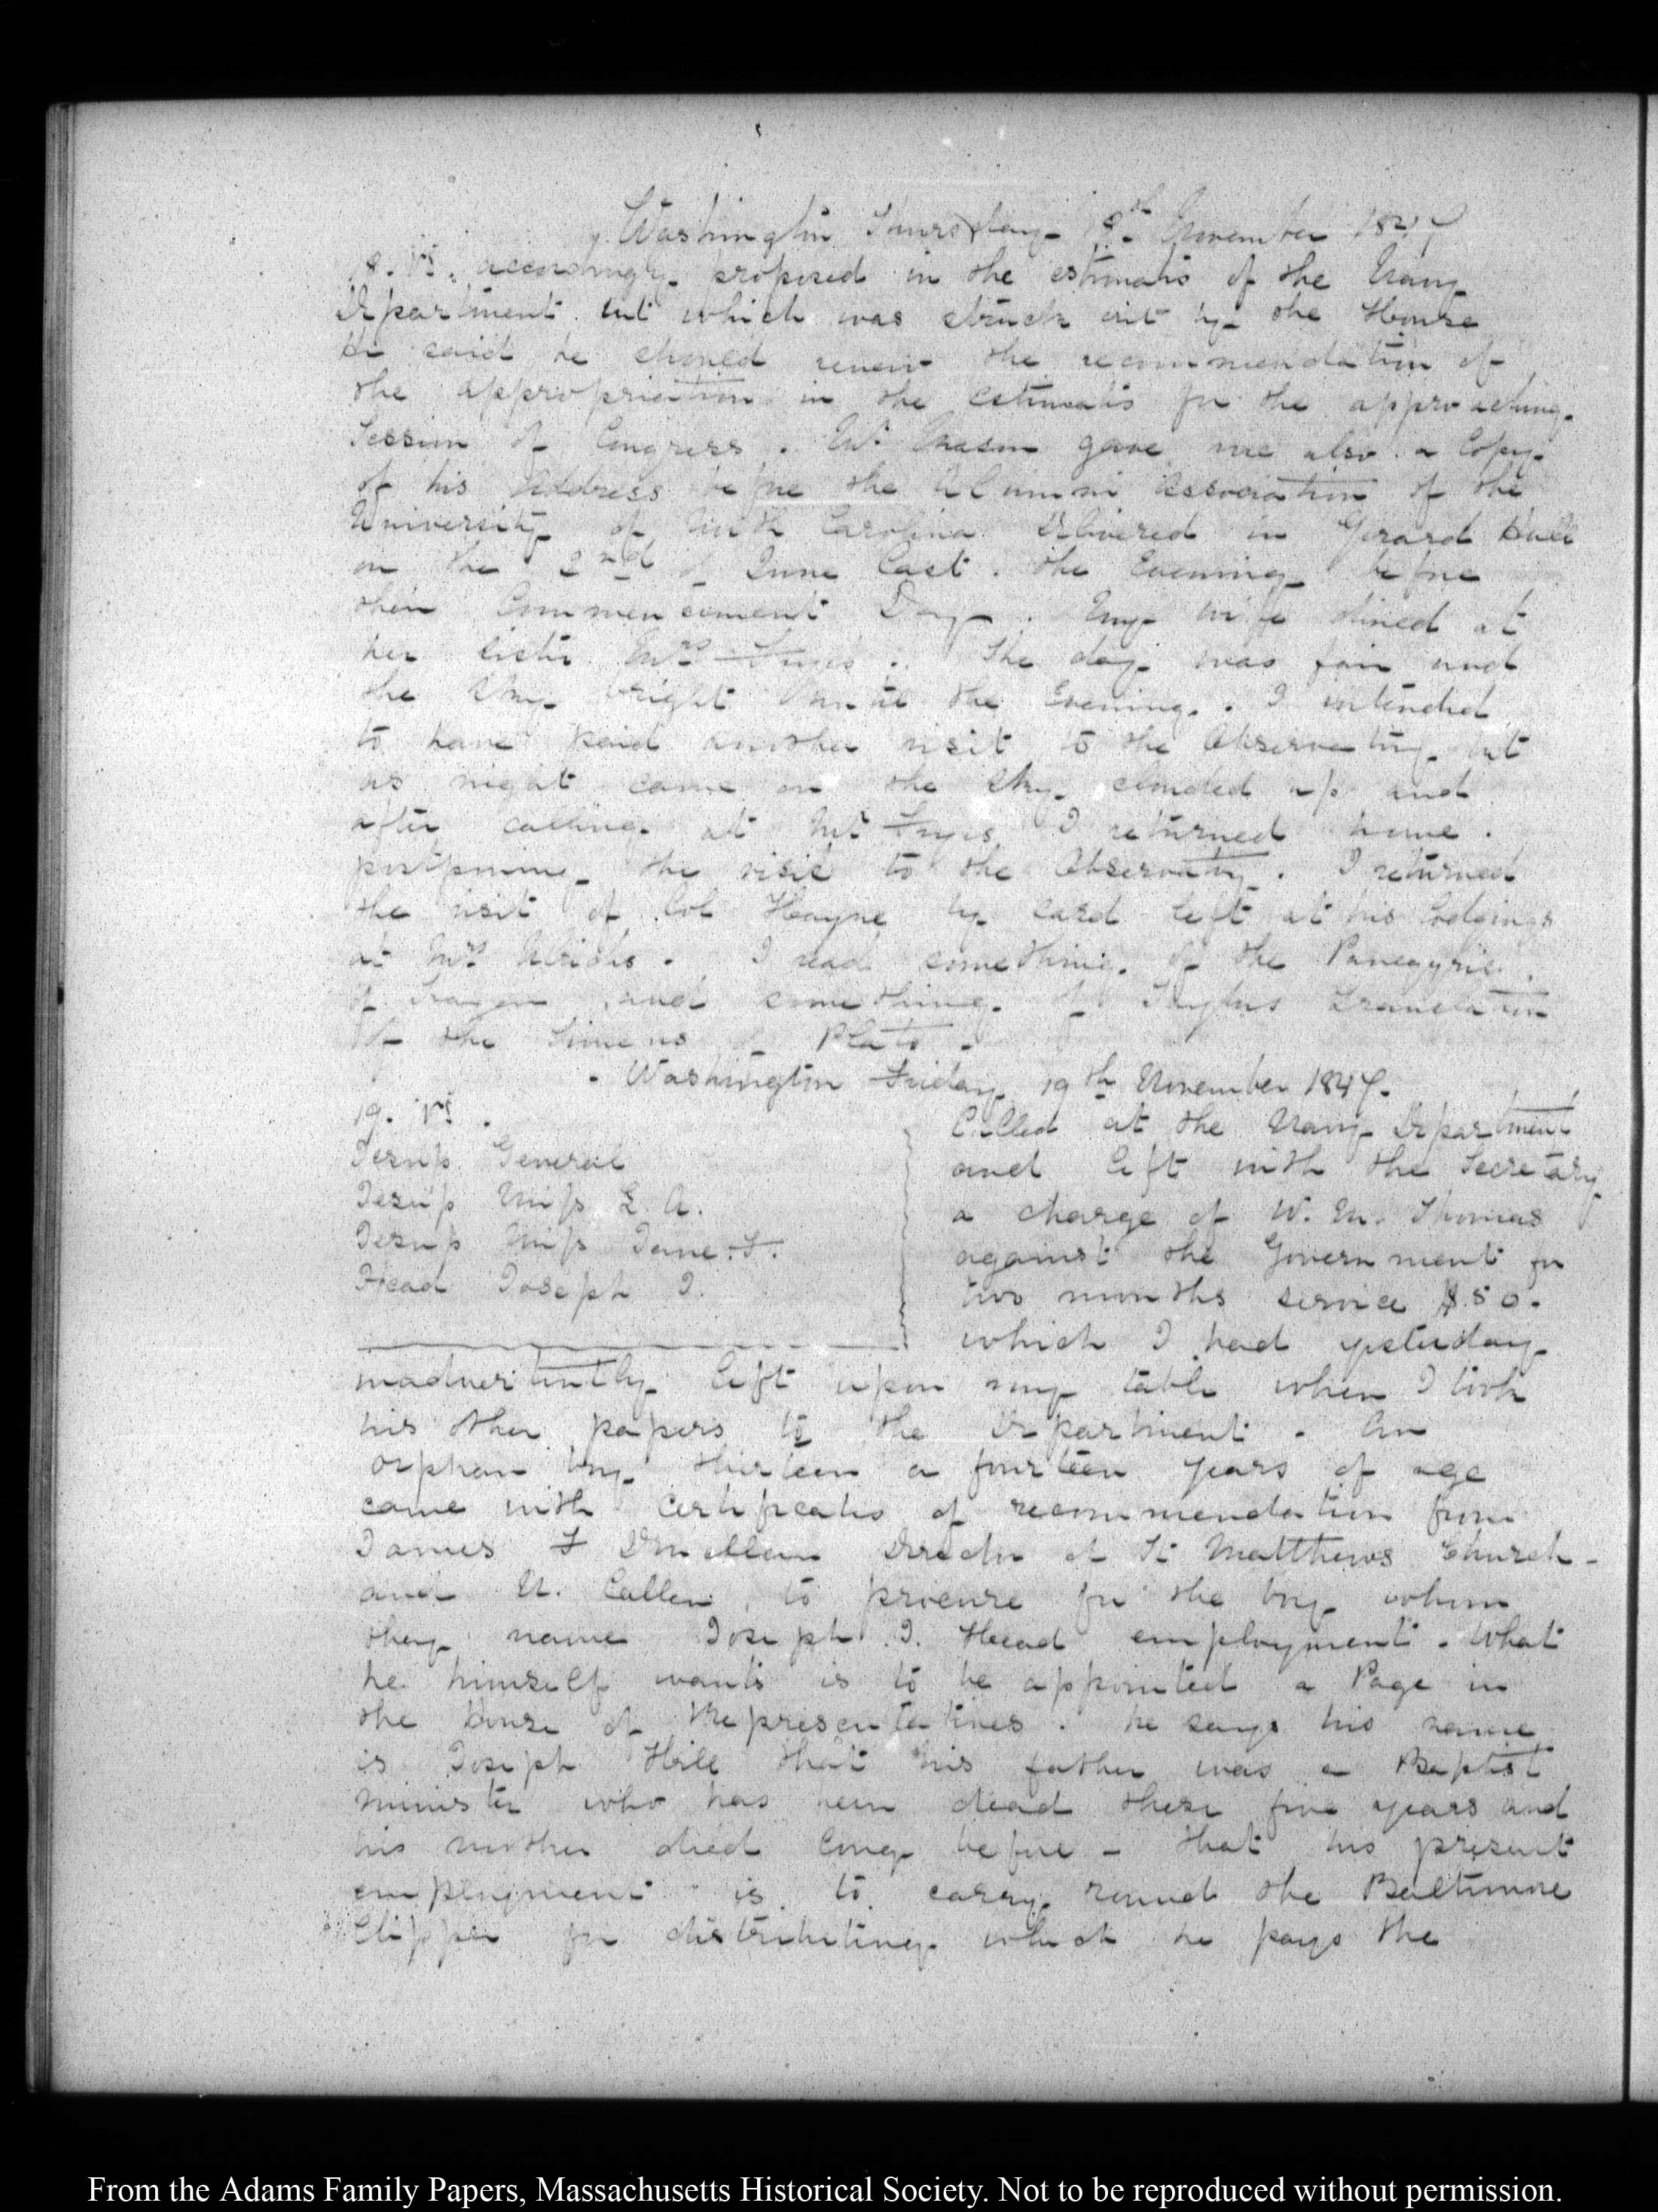 Washington Thursday 18th November 1847
18. VI. accordingly proposed in the estimates of the Navy
Department but which was struck out by the House
He said he should renew the recommendation of
the appropriation in the estimates for the approaching
Session of Congress. Mr Mason gave me also a Copy
of his Address before the Alumni Association of the
University of North Carolina delivered in Gerard Hall
on the 2nd of June last. the Evening before
their Commencement Day. My wife dined at
her sister Mrs Frye's. The day was fair and
the Sky bright until the Evening. I intended
to have paid another visit to the Observatory but
as night came on the sky clouded up and
after calling at Mr Frye's I returned home.
postponing the visit to the Observatory. I returned
the visit of Col Hayne by card left at his lodgings
at Mrs I read something of the Panegyric
of Trajan and something of Taylors translation
of the Timeus of Plato.
Washington Friday 19th November 1847.
19. VI.
Jesup General
Jesup Miss E. A.
Jesup Miss Jane. F.
Head Joseph I.
Called at the Navy Department
and left with the Secretary
a charge of W. M. Thomas
against the Government for
two months service $.50.
which I had yesterday
inadvertently left upon my table when I took
his other papers to the Department. An
orphan boy thirteen or fourteen years of age
came with certificates of recommendation from
James F Donellan of St Matthews Church-
and N. Callen, to procure for the boy whom
they name Joseph I. Head employment. What
he himself wants is to be appointed a Page in
the House of Representatives. he says his name
is Joseph Hill that his father was a Baptist
minister who has been dead these five years and
his mother died long before - that his present
employment is to carry round the Baltimore
Clipper for distributing which he pays the
From the Adams Family Papers, Massachusetts Historical Society. Not to be reproduced without permission.